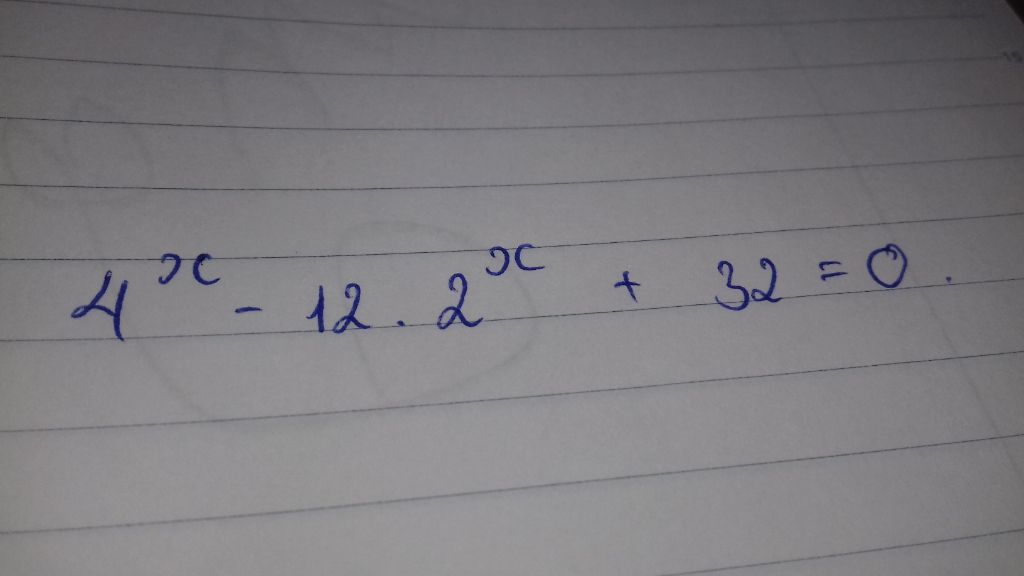 4ˣ - 12 . 2ˣ + 32 = 0 .